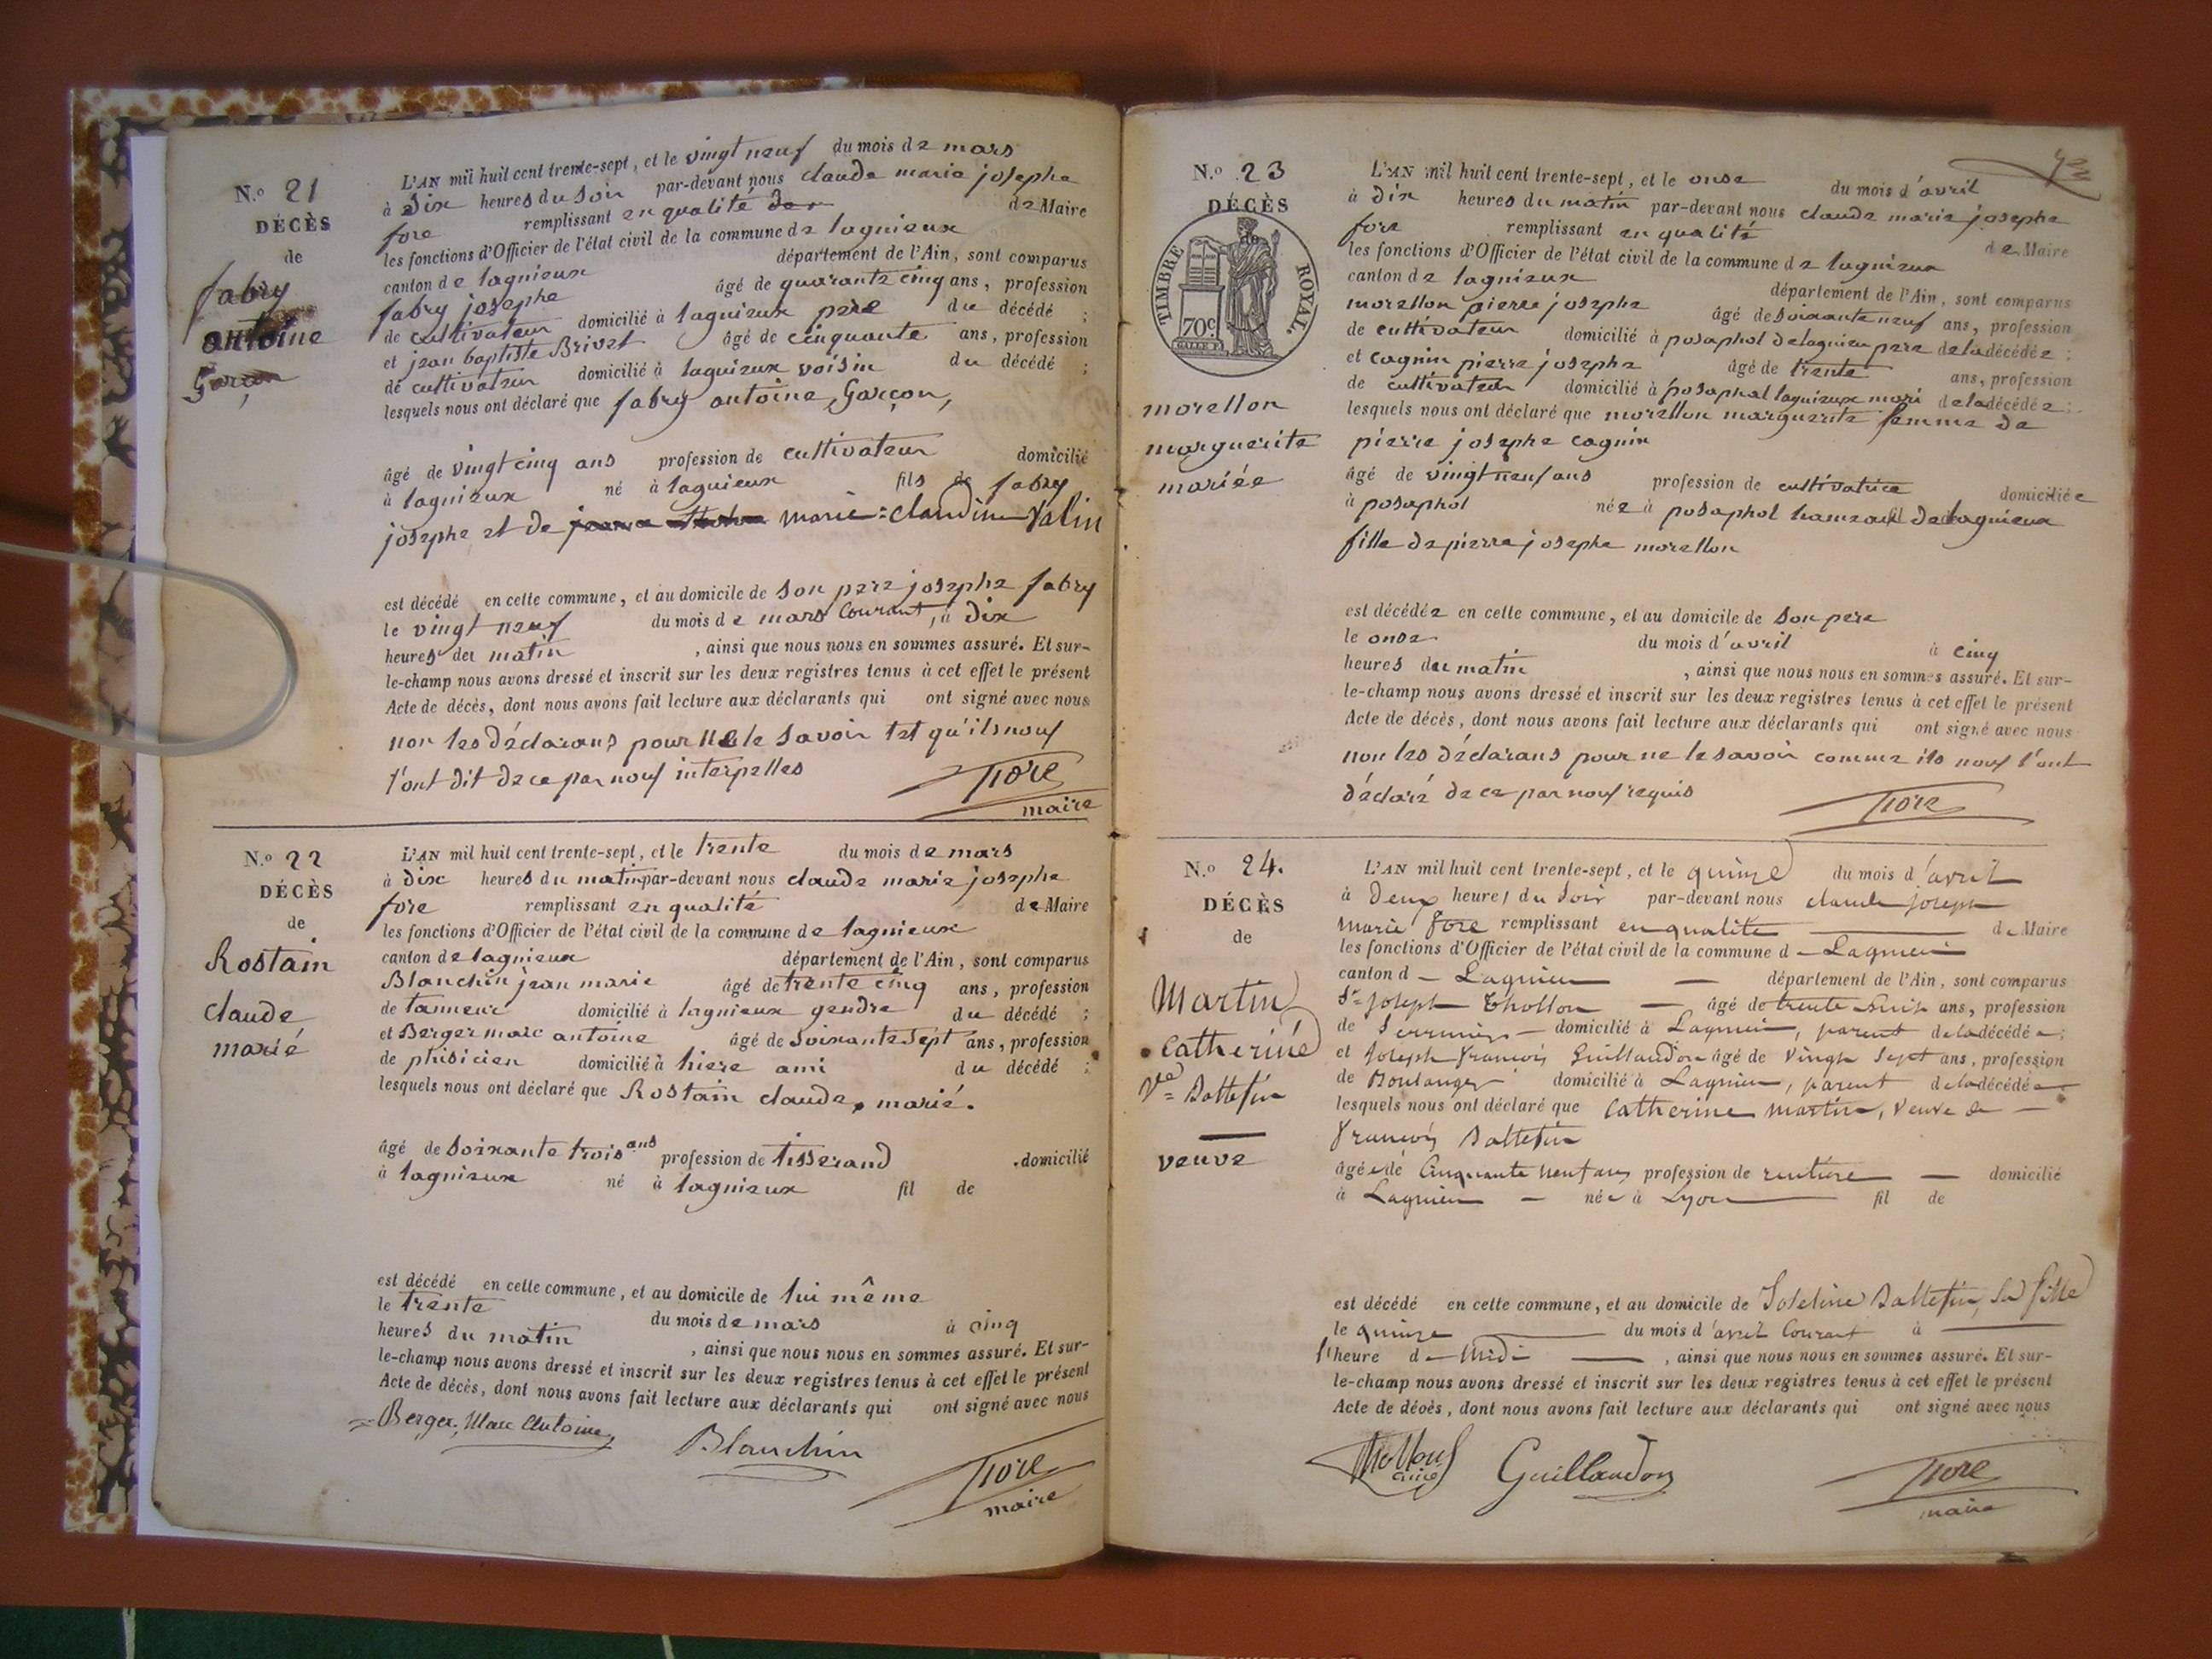 N.o 21
DÉCÈS
de
fabry
antoine
Garçon
L'AN mil huit cent trente-sept, et le vingt neuf du mois de mars
à Dix heures du soir par-devant nous claude marie josephe
fore remplissant en qualité de Maire
les fonctions d'Officier de l'état civil de la commune de lagnieux
canton de lagnieux département de l'Ain, sont comparus
fabry josephe âgé de quarante cinq ans, profession
de cultivateur domicilié à lagnieux père du décédé ;
et jean baptiste Brivet âgé de cinquante ans, profession
de cultivateur domicilié à lagnieux voisin du décédé ;
lesquels nous ont déclaré que fabry antoine, Garçon,
âgé de vingt cinq ans profession de cultivateur domicilié
à lagnieux né à lagnieux fils de fabry
josephe et de marie-claudine Valin
est décédé en cette commune, et au domicile de son pere josephe fabry
le vingt neuf du mois de mars Courant, à Dix
heures du matin , ainsi que nous nous en sommes assuré. Et sur-
le-champ nous avons dressé et inscrit sur les deux registres tenus à cet effet le présent
Acte de décès, dont nous avons fait lecture aux déclarants qui ont signé avec nous
non les déclarans pour ne le savoir tel qu'ils nous
l'ont dit de ce par nous interpellés
fore
maire
N.o 22
DÉCÈS
de
Rostain
claude
marié
L'AN mil huit cent trente-sept, et le trente du mois de mars
à dix heures du matin par-devant nous claude marie josephe
fore remplissant en qualité de Maire
les fonctions d'Officier de l'état civil de la commune de lagnieux
canton de lagnieux département de l'Ain, sont comparus
Blanchin jean marie âgé de trente cinq ans, profession
de tanneur domicilié à lagnieux gendre du décédé ;
et Berger marc antoine âgé de soixante sept ans, profession
de phisicien domicilié à hiere ami du décédé ;
lesquels nous ont déclaré que Rostain claude, marié.
âgé de soixante trois ans profession de tisserand domicilié
à lagnieux né à lagnieux fil de
est décédé en cette commune, et au domicile de lui même
le trente du mois de mars à cinq
heures du matin , ainsi que nous nous en sommes assuré. Et sur-
le-champ nous avons dressé et inscrit sur les deux registres tenus à cet effet le présent
Acte de décès, dont nous avons fait lecture aux déclarants qui ont signé avec nous
Berger, Marc Antoine
Blanchin
fore
maire
N.o 23
DÉCÈS
de
TIMBRE ROYAL.
70c
morellon
marguerite
mariée
L'AN mil huit cent trente-sept, et le onse du mois d'avril
à dix heures du matin par-devant nous claude marie josephe
fore remplissant en qualité de Maire
les fonctions d'Officier de l'état civil de la commune de lagnieux
canton de lagnieux département de l'Ain, sont comparus
morellon pierre josephe âgé de soixante neuf ans, profession
de cultivateur domicilié à posaphol de lagnieu pere de la décédée ;
et cagnin pierre josephe âgé de trente ans, profession
de cultivateur domicilié à posaphol lagnieux mari de la décédée ;
lesquels nous ont déclaré que morellon marguerite femme de
pierre josephe cagnin
âgé de vingt neuf ans profession de cultivatrice domiciliée
à posaphol née à posaphol hameau de lagnieux
fille de pierre josephe morellon
est décédée en cette commune, et au domicile de son pere
le onse du mois d'avril à cinq
heures du matin , ainsi que nous nous en sommes assuré. Et sur-
le-champ nous avons dressé et inscrit sur les deux registres tenus à cet effet le présent
Acte de décès, dont nous avons fait lecture aux déclarants qui ont signé avec nous
non les déclarans pour ne le savoir comme ils nous l'ont
déclaré de ce par nous requis
fore
N.o 24.
DÉCÈS
de
Martin
Catherine
Ve Battefin
veuve
L'AN mil huit cent trente-sept, et le quinze du mois d'avril
à Deux heures du Soir par-devant nous claude joseph
marie fore remplissant en qualité de Maire
les fonctions d'Officier de l'état civil de la commune d Lagnieu
canton d Lagnieu département de l'Ain, sont comparus
Sr joseph Thollon âgé de trente huit ans, profession
de Serrurier domicilié à Lagnieu, parent de la décédée ;
et joseph françois Guillaudon âgé de vingt sept ans, profession
de Boulanger domicilié à Lagnieu, parent de la décédée
lesquels nous ont déclaré que Catherine martin, veuve de
françois Battefin
âgée de Cinquante neuf ans profession de rentière domicilié
à Lagnieu née à Lyon fil de
est décédé en cette commune, et au domicile de Joséline Battefin, sa fille
le quinze du mois d'avril Courant à
l'heure de Midi , ainsi que nous nous en sommes assuré. Et sur-
le-champ nous avons dressé et inscrit sur les deux registres tenus à cet effet le présent
Acte de décès, dont nous avons fait lecture aux déclarants qui ont signé avec nous
Thollon
Guillaudon
fore
maire